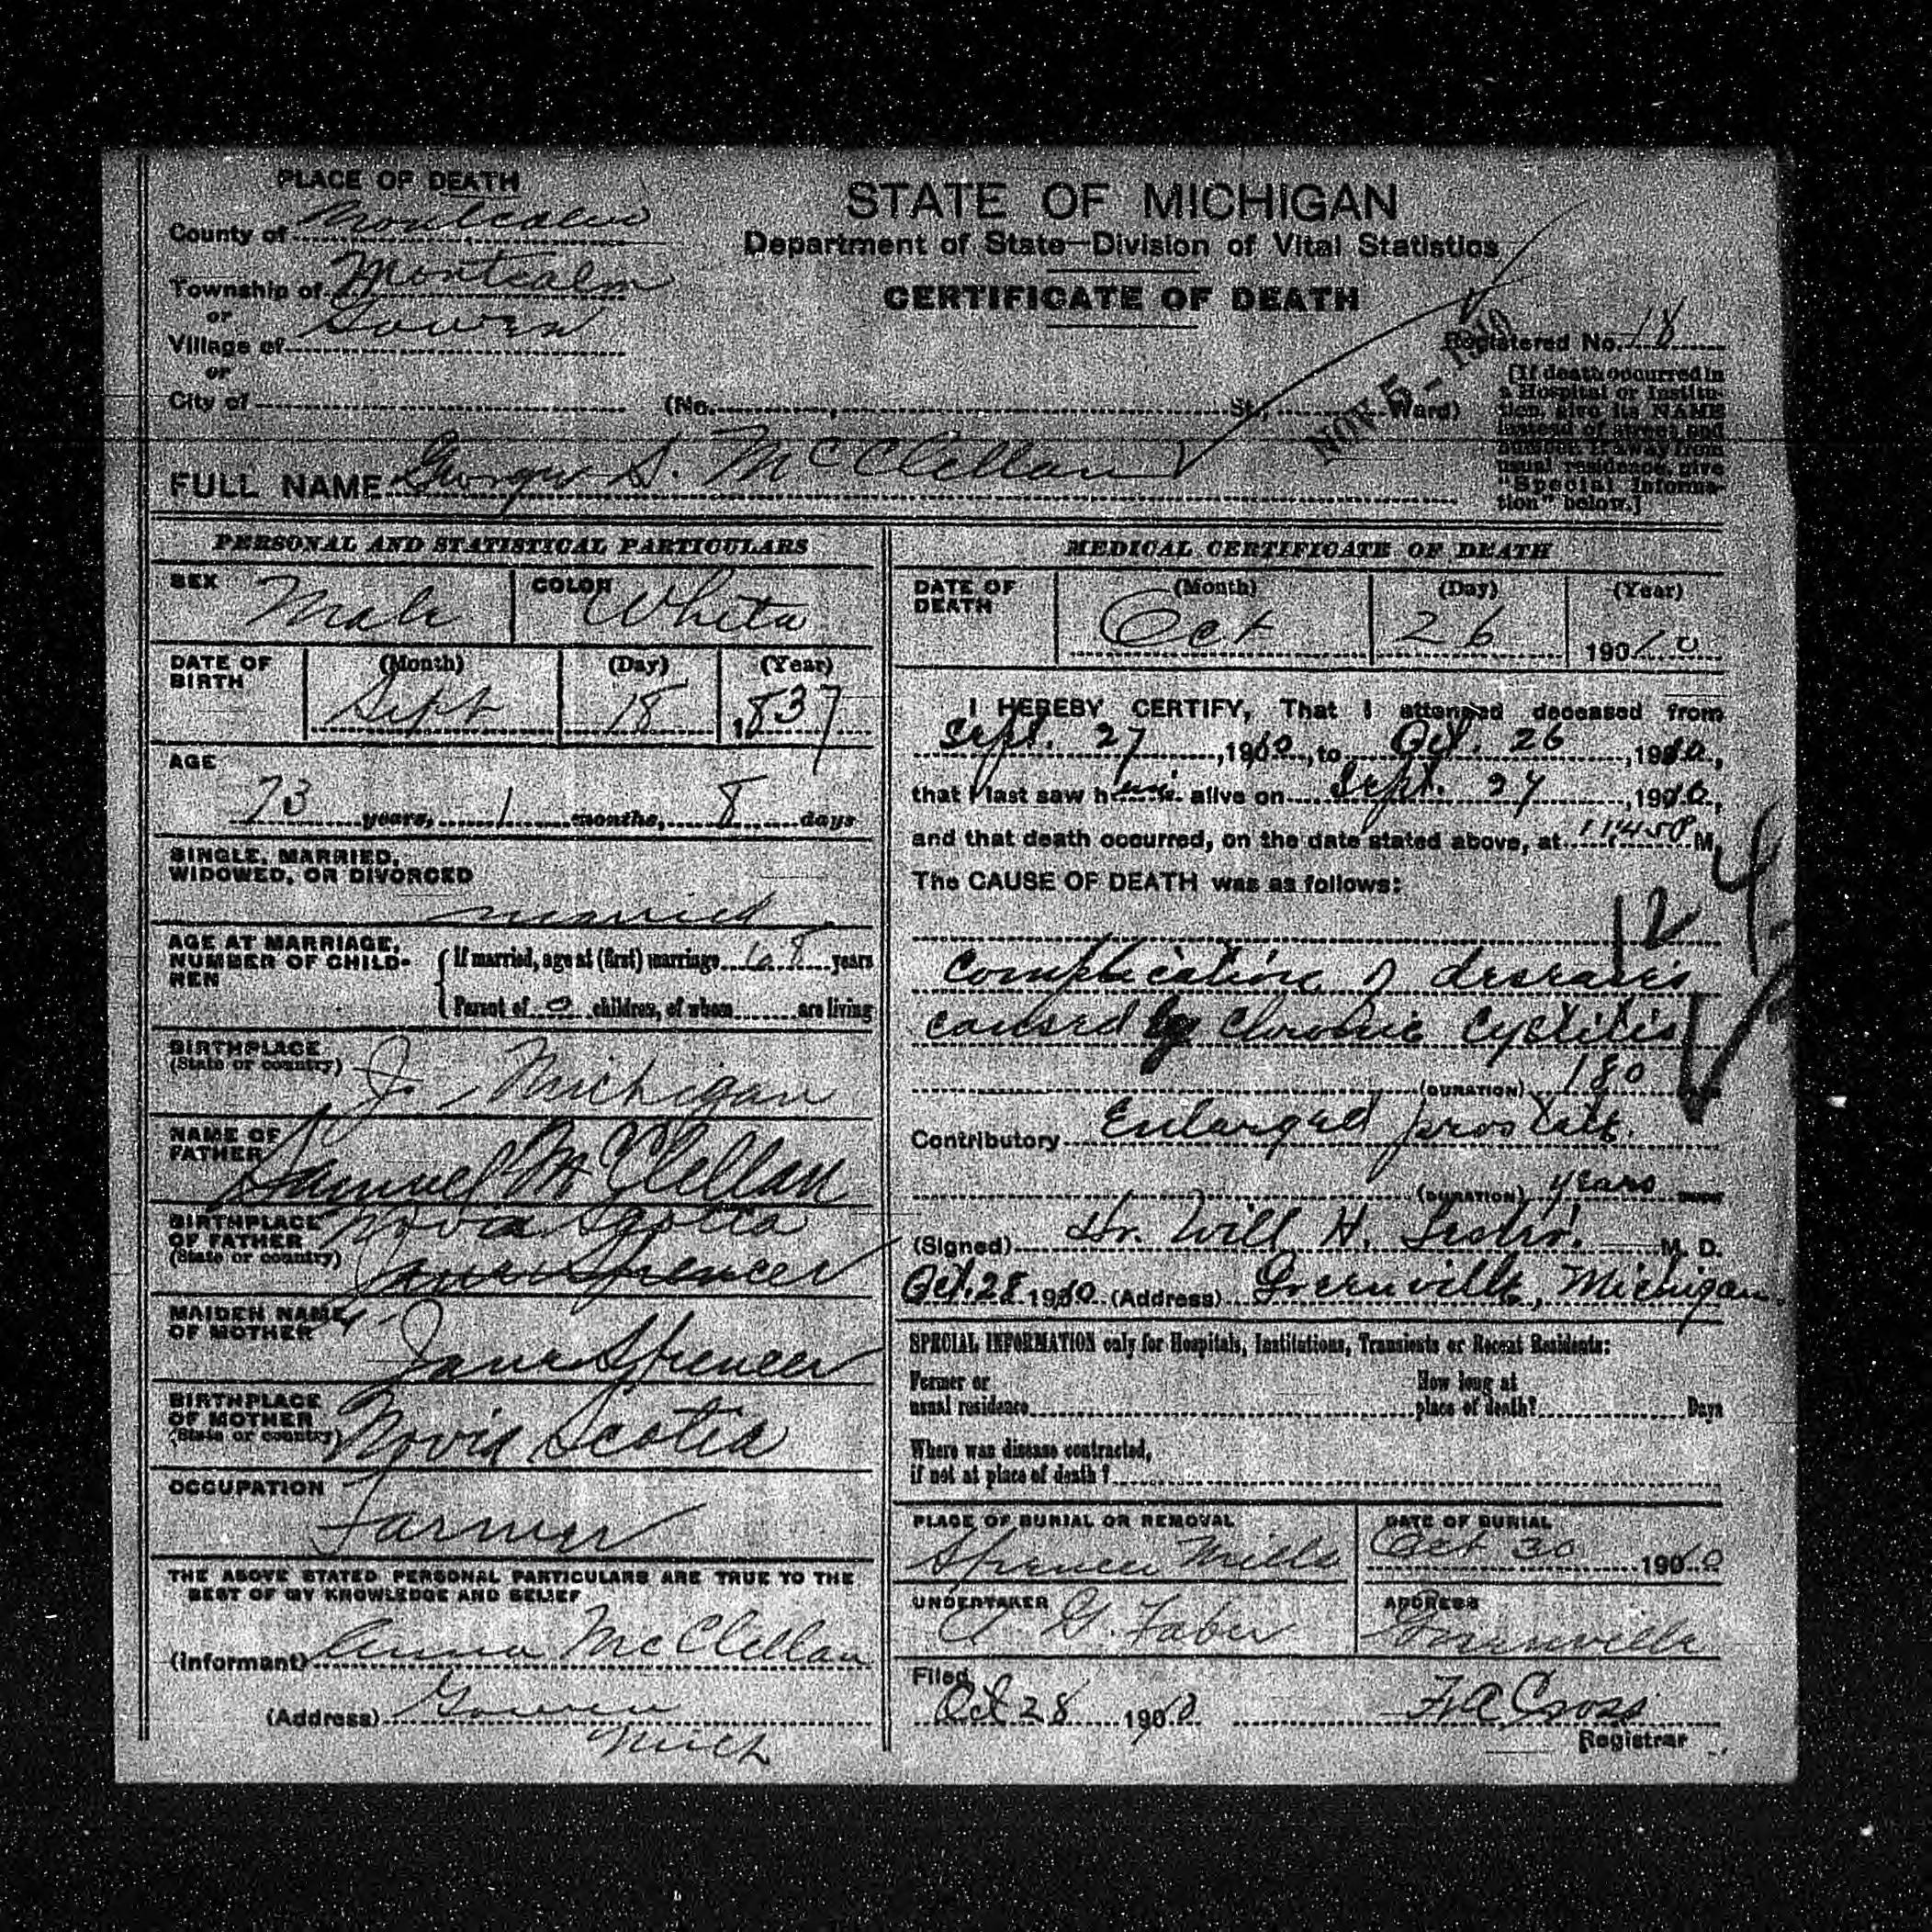 PLACE OF DEATH
County of Montcalm
Township of Montcalm
or
Village of Gowen
or
City of
STATE OF MICHIGAN
Department of State—Division of Vital Statistics
CERTIFICATE OF DEATH
Registered No. 18
(No. , St., Ward)
NOV 5 - 1910
[If death occurred in
a Hospital or institu-
tion, give its NAME
instead of street and
number. If away from
usual residence, give
"Special Informa-
tion" below.]
FULL NAME George S. McClellan
PERSONAL AND STATISTICAL PARTICULARS
SEX Male COLOR White
DATE OF BIRTH (Month) (Day) (Year)
Sept 18 1837
AGE
73 years, 1 months, 8 days
SINGLE, MARRIED,
WIDOWED, OR DIVORCED
married
AGE AT MARRIAGE,
NUMBER OF CHILD-
REN
If married, age at (first) marriage 68 years
Parent of 0 children, of whom are living
BIRTHPLACE
(State or country) Michigan
NAME OF
FATHER Samuel McClellan
BIRTHPLACE
OF FATHER
(State or country) Nova Scotia
Jane Spencer
MAIDEN NAME
OF MOTHER
Jane Spencer
BIRTHPLACE
OF MOTHER
(State or country) Novia Scotia
OCCUPATION
Farmer
THE ABOVE STATED PERSONAL PARTICULARS ARE TRUE TO THE
BEST OF MY KNOWLEDGE AND BELIEF
(Informant) Anna McClellan
(Address) Gowen
Mich
MEDICAL CERTIFICATE OF DEATH
DATE OF DEATH (Month) (Day) (Year)
Oct 26 1910
I HEREBY CERTIFY, That I attended deceased from
Sept. 27, 1910, to Oct. 26, 1910,
that I last saw him alive on Sept. 27, 1910,
and that death occurred, on the date stated above, at 1145P M.
The CAUSE OF DEATH was as follows:
12
Complication of diseases
caused by Chronic Cystitis
(DURATION) 180
Contributory Enlarged prostate.
(DURATION) years
(Signed) Dr. Will H. M. D.
Oct. 28 1910 (Address) Greenville, Michigan.
SPECIAL INFORMATION only for Hospitals, Institutions, Transients or Recent Residents:
Former or
usual residence
How long at
place of death? Days
Where was disease contracted,
if not at place of death?
PLACE OF BURIAL OR REMOVAL
Spencer Mills
DATE OF BURIAL
Oct 30 1910
UNDERTAKER
G. Faber
ADDRESS
Greenville
Filed
Oct 28 1910 F.A. Cross
Registrar